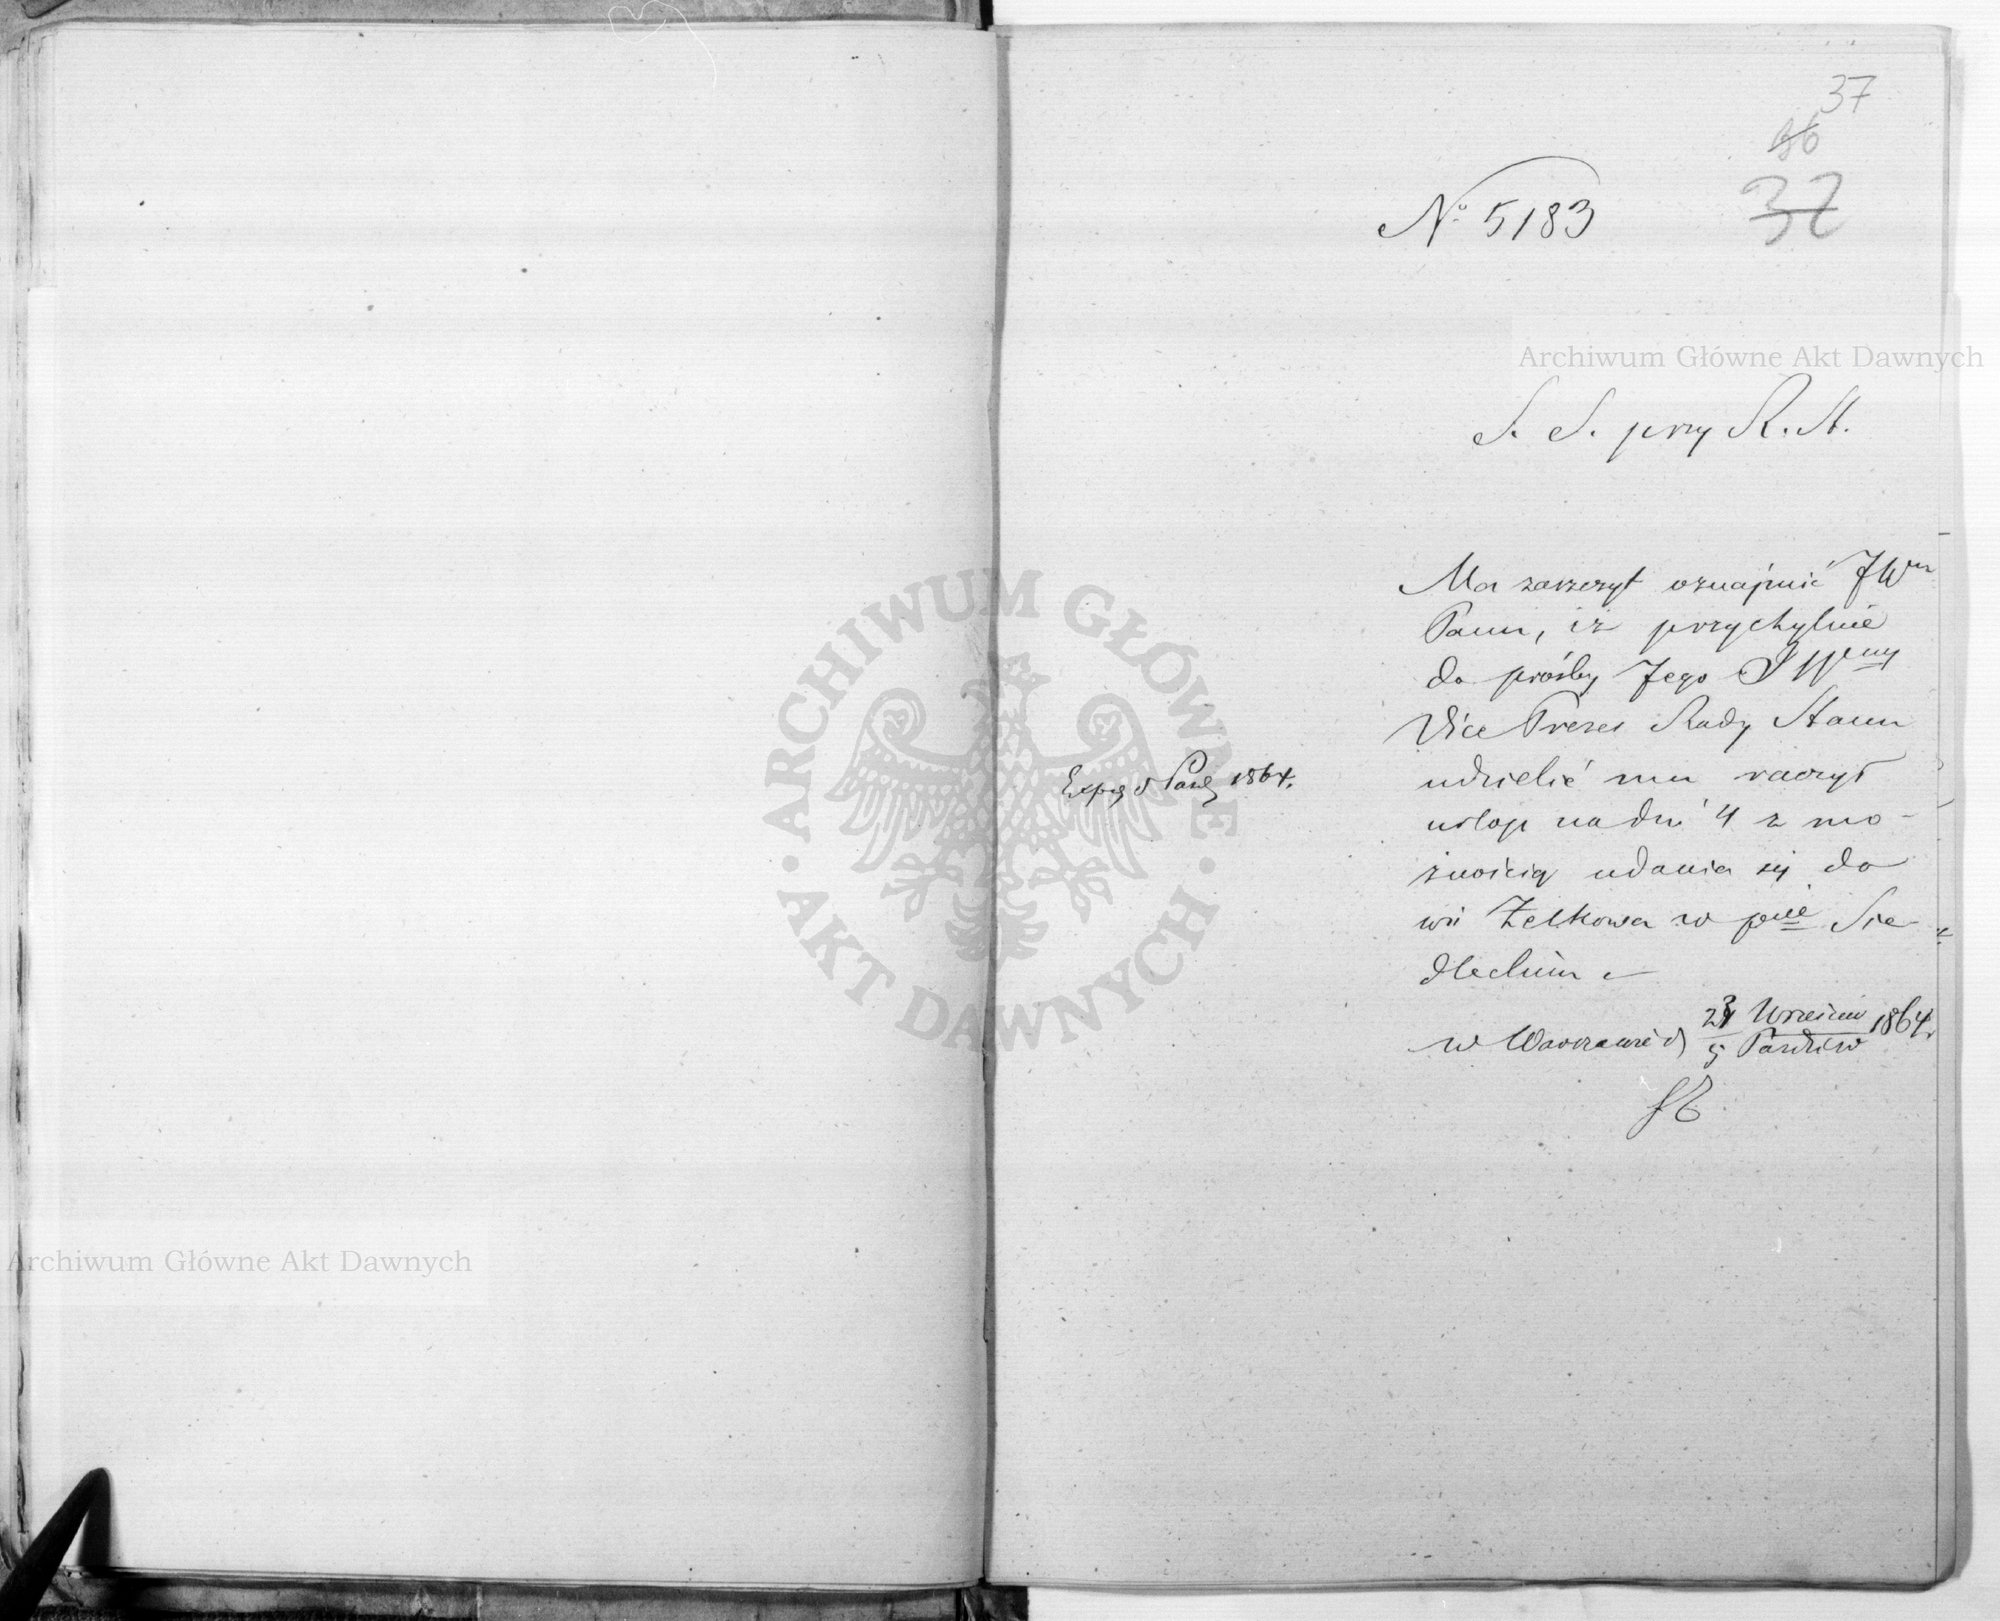 37
36
37
No 5183
Archiwum Główne Akt Dawnych
S. S. przy R. St.
Ma zaszczyt oznajmić JWmu
Panu, iż przychylnie
do prośby Jego
Vice Prezes Rady Stanu
udzielić mu raczył
Exp. 5 Paźd 1864.
urlop na dni 4 z mo-
żnością udania się do
wsi Żelkowa w pcie Sie-
dleckim
w Warszawie d 23 Wrześnie / 5 Paździer 1864 r.
ARCHIWUM GŁÓWNE
· AKT DAWNYCH ·
Archiwum Główne Akt Dawnych